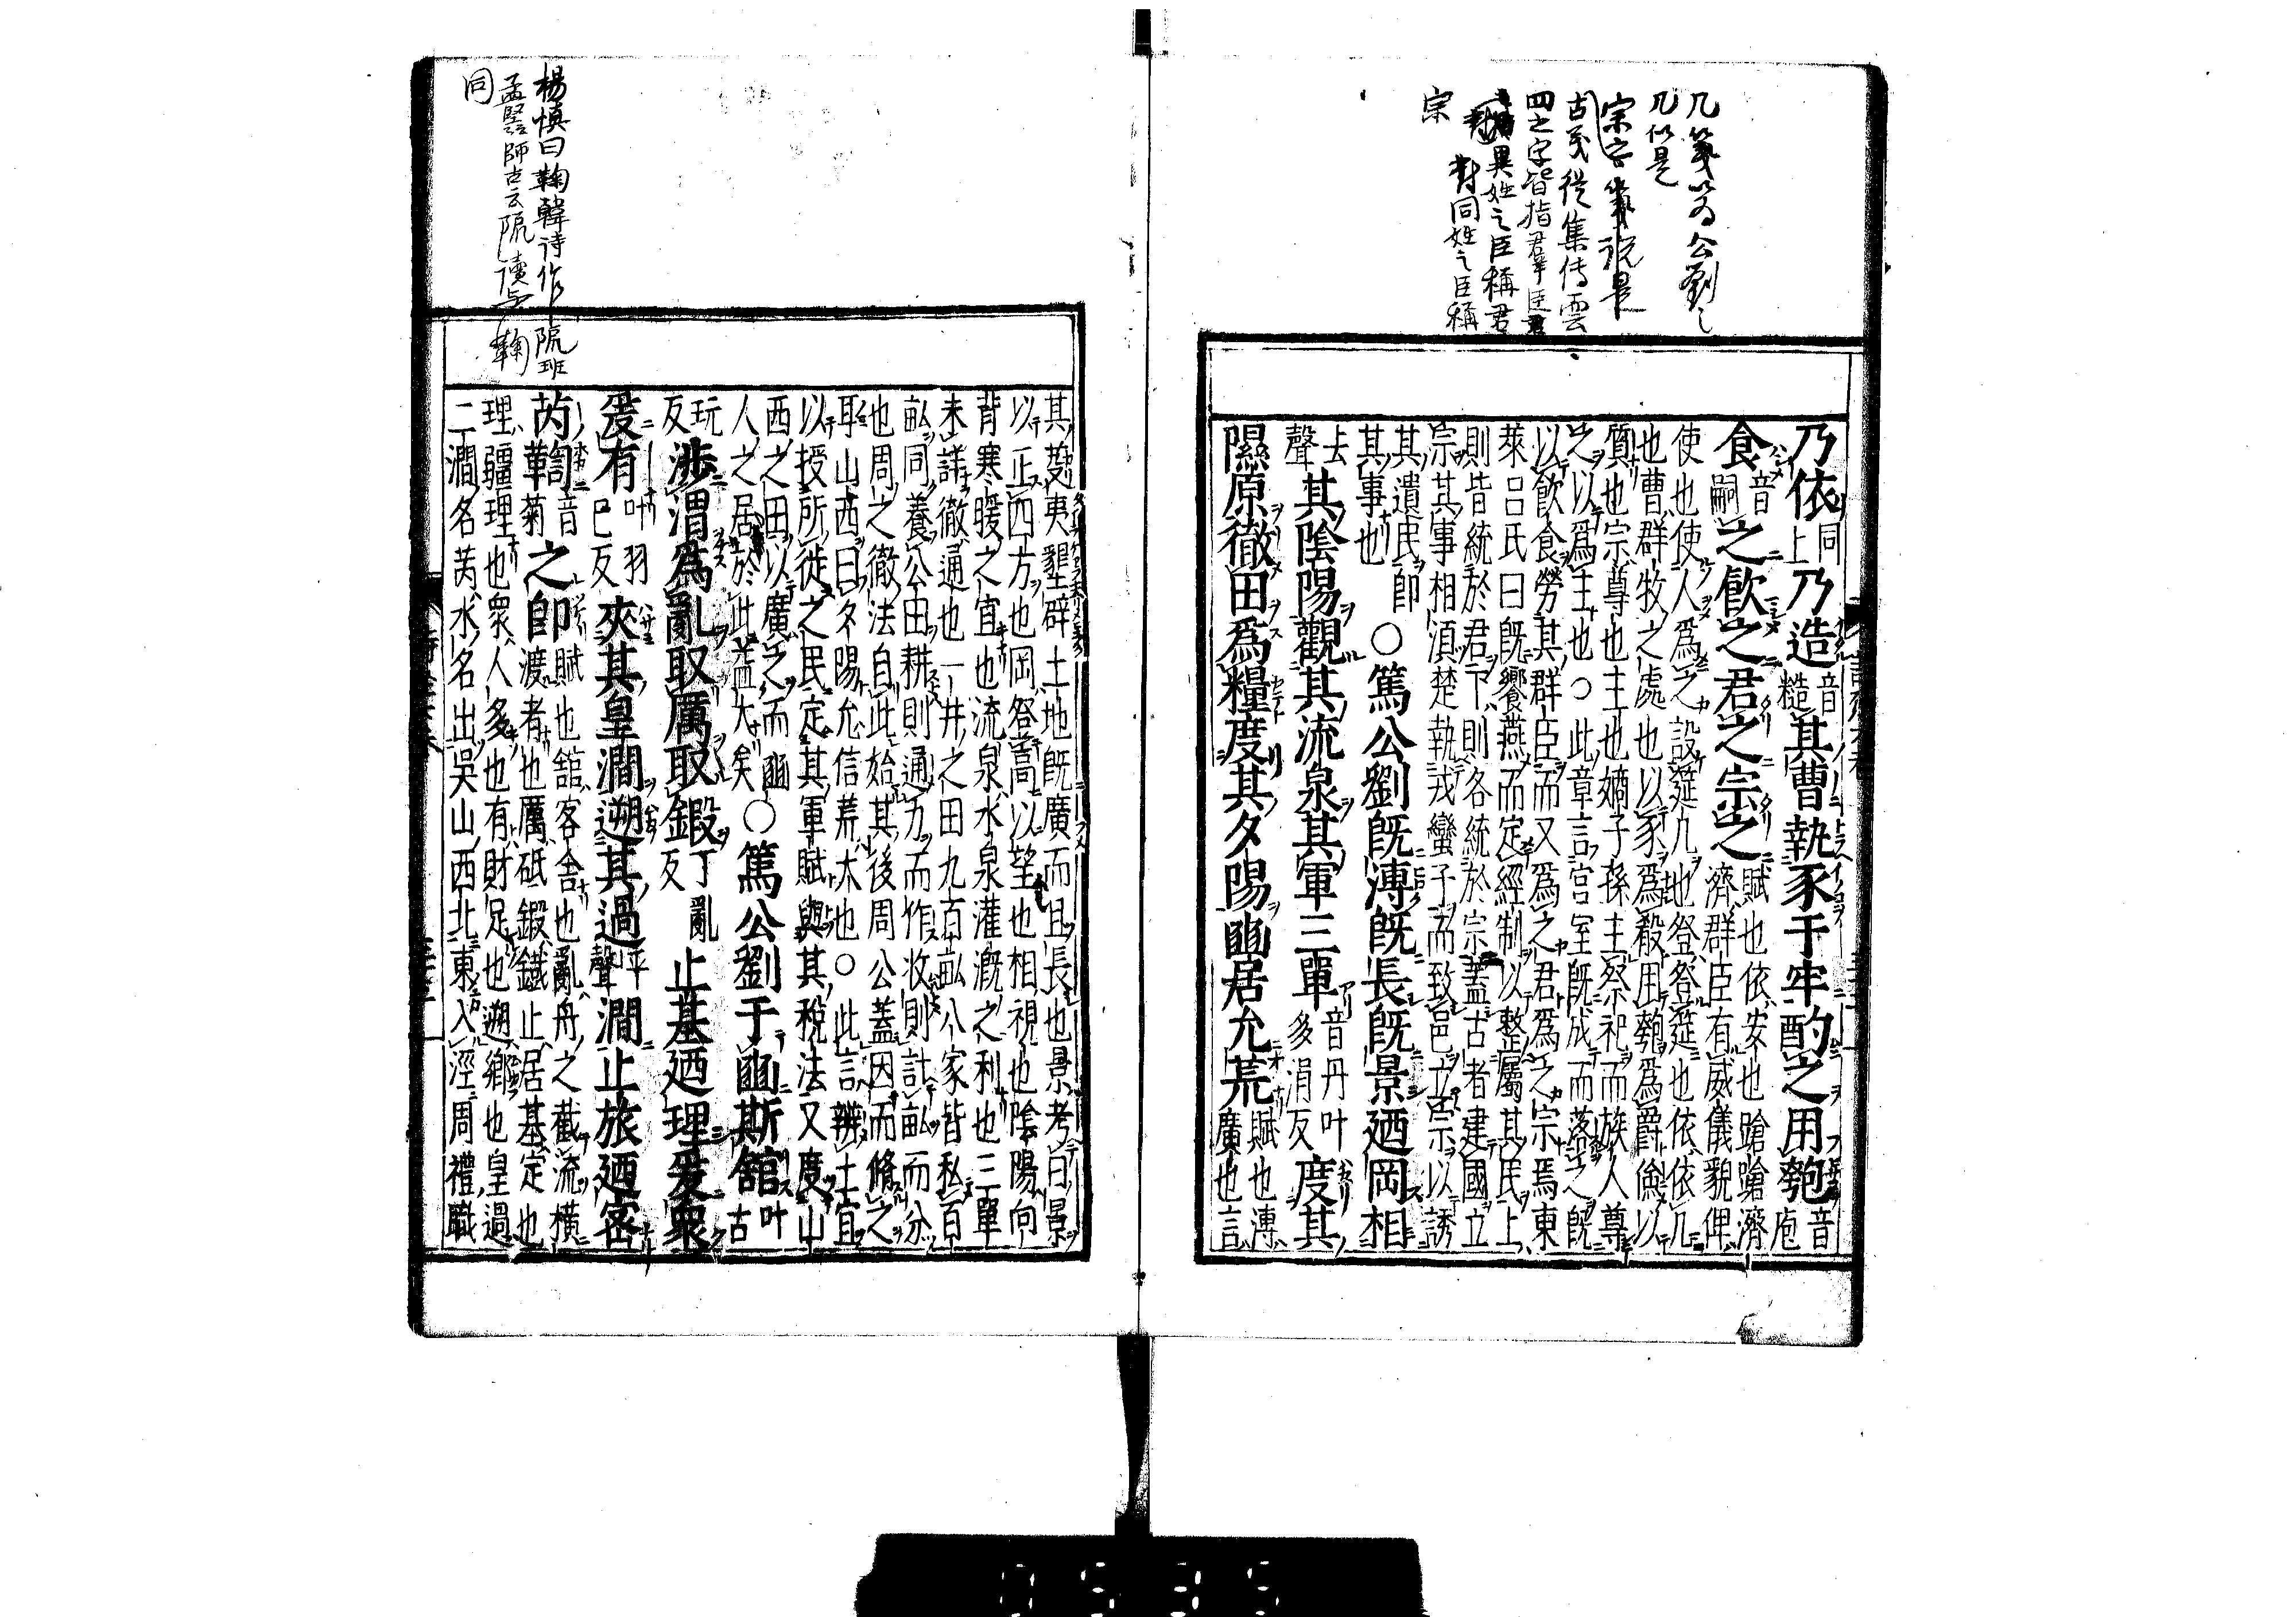 几箋以為公劉之
几似是
宗之箋説是
古義從集傳云
四之字皆指群臣君
對異姓之臣稱君
對同姓之臣稱
宗
乃依同上乃造音糙其曹執豕于牢酌之用匏音庖
食音嗣之飲之君之宗之賦也依安也蹌蹌濟
濟群臣有威儀貌俾
使也使人爲之設筵几也登登筵也依依几
也曹群牧之處也以豕爲殽用匏爲爵儉以
質也宗尊也主也嫡子孫主祭祀而族人尊
之以爲主也○此章言宮室既成而落之既
以飲食勞其群臣而又爲之君爲之宗焉東
萊呂氏曰既饗燕而定經制以整屬其民上
則皆統於君下則各統於宗蓋古者建國立
宗其事相須楚執戎蠻子而致邑立宗以誘
其遺民即
其事也○篤公劉既溥既長既景迺岡相
去聲其陰陽觀其流泉其軍三單音丹叶多涓反度其
隰原徹田爲糧度其夕陽豳居允荒賦也溥
廣也言
楊慎曰鞫韓詩作阮班
孟堅師古云阮讀與鞫
同
其芟夷墾辟土地既廣而且長也景考日景
以正四方也岡登高以望也相視也陰陽向
背寒暖之宜也流泉水泉灌漑之利也三單
未詳徹通也一井之田九百畝八家皆私百
畝同養公田耕則通力而作收則計畝而分
也周之徹法自此始其後周公蓋因而脩之
耳山西曰夕陽允信荒大也○此言辨土宜
以授所徙之民定其軍賦與其稅法又度山
西之田以廣之而豳
人之居於此益大矣○篤公劉于豳斯館叶古
玩反渉渭爲亂取厲取鍛丁亂反止基迺理爰衆
爰有叶羽己反夾其皇澗遡其過平聲澗止旅迺密
芮鞫音菊之卽賦也館客舍也亂舟之截流橫
渡者也厲砥鍛鐵止居基定也
理疆理也衆人多也有財足也遡鄉也皇過
二澗名芮水名出吳山西北東入涇周禮職